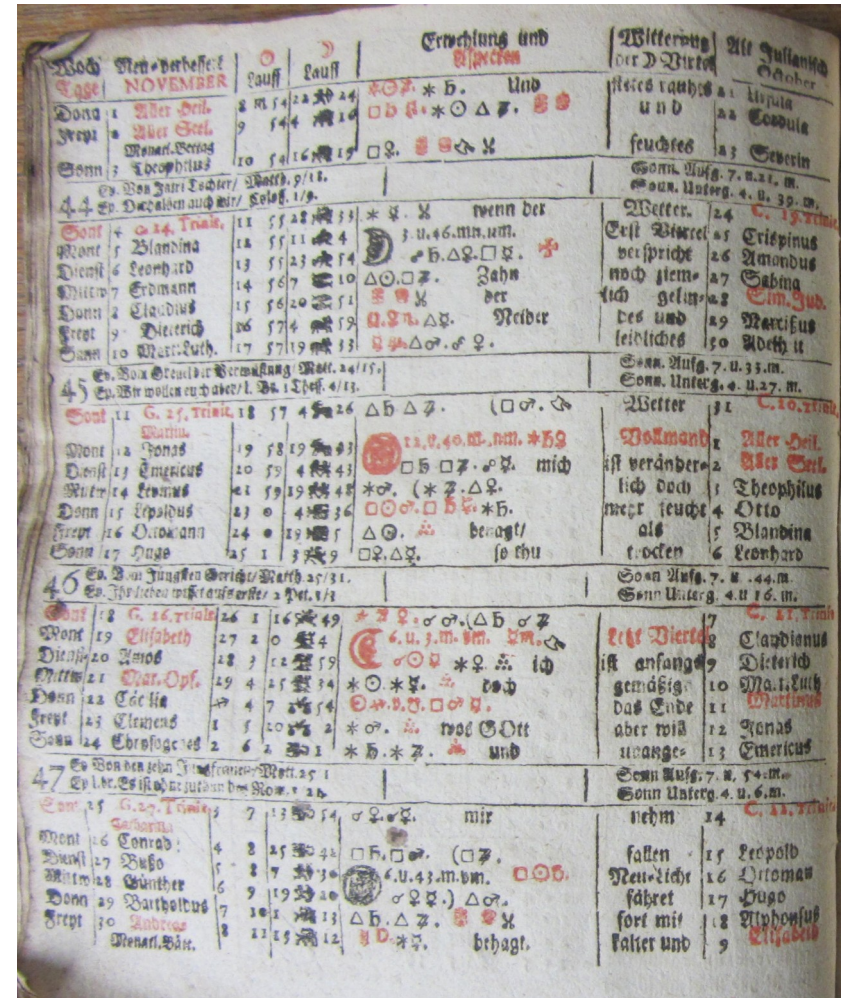 Woch Neu-verbessert ☉ ☽ Erwehlung und Witterung Alt Julianisch
Tage NOVEMBER Lauff Lauff Aspecten der ☽ Viertel October
Donn 1 Aller Heil. 8 ♏ 54 22 24 ✶ ♄. Und stetes rauhes 21 Ursula
Freyt 2 Aller Seel. 9 54 4 □ ♄ ✶ ☉ △ ♃. und 22 Cordula
Monatl. Bettag
Sonn 3 Theophilus 10 54 16 19 □ ♀. feuchtes 23 Severin
Ev. Von Jairi Tochter/ Matth. 9/18. Sonn. Aufg. 7. u. 21. m.
44 Ep. Derhalben auch wir/ Coloss. 1/9. Sonn. Unterg. 4. u. 39. m.
Sont 4 G. 24. Trinit. 11 55 28 33 ✶ ☿. wenn der Wetter. 24 G. 19. Trinit
Mont 5 Blandina 12 55 11 4 3. u. 46. m. Erst Viertel 25 Crispinus
Dienst 6 Leonhard 13 55 23 54 ☍ ♄. △ ♀. □ ☿. verspricht 26 Amandus
Mittw 7 Erdmann 14 56 7 10 △ ☉. □ ♃. Zahn noch ziem- 27 Sabina
Donn 8 Claudius 15 56 20 51 der lich gelin- 28 Sim. Jud.
Freyt 9 Dieterich 16 57 4 59 △ ☿. Neider des und 29 Narcißus
Sonn 10 Mart. Luth. 17 57 19 33 △ ♂. ☍ ♀. leidliches 30
Ev. Vom Greuel der Verwüstung/ Matt. 24/15. Sonn. Aufg. 7. u. 33. m.
45 Ep. Wir wollen euch aber/ l. Br. 1 Thess. 4/13. Sonn. Unterg. 4. u. 27. m.
Sont 11 G. 25. Trinit. 18 57 4 26 △ ♄ △ ♃. (□ ♂. Wetter 31 G. 20. Trinit
Martin.
Mont 12 Jonas 19 58 19 43 12. u. 40. m. nm. ✶ ♄ Vollmond 1 Aller Heil.
Dienst 13 Emericus 20 59 4 43 □ ♄ □ ♃. ☍ ☿. mich ist veränder- 2 Aller Seel.
Mittw 14 Levinus 21 59 19 48 ✶ ♂. (✶ ♃. △ ♀. lich doch 3 Theophilus
Donn 15 Lepoldus 23 0 4 36 □ ☉ ♂. □ ♄ ✶ ♄. mehr feucht 4 Otto
Freyt 16 Ottomann 24 0 19 5 △ ☉. benagt/ als 5 Blandina
Sonn 17 Hugo 25 1 3 9 □ ♀. △ ☿. so thu trocken 6 Leonhard
Ev. Vom Jüngsten Gericht/ Matth. 25/31. Sonn Aufg. 7. u. 44. m.
46 Ep. Ihr lieben 2 Pet. 3/3 Sonn Unterg. 4. u 16. m.
Sont 18 G. 26. Trinit. 26 1 16 49 ✶ ♃ ♀. ☌ ♂. (△ ♄ ☌ ♃ 7 G. 21. Trinit
Mont 19 Elisabeth 27 2 0 4 6. u. 3. m. vm. Letzt Viertel 8 Claudianus
Dienst 20 Amos 28 3 12 59 ☌ ☉ ☿ ✶ ♀. ich ist anfangs 9 Dieterich
Mittw 21 Mar. Opf. 29 4 25 34 ✶ ☉. ✶ ☿. doch gemäßig 10 Ma. t. Luth
Donn 22 Cäcilia 4 7 54 □ ♂ ☿. das Ende 11 Martinus
Freyt 23 Clemens 1 5 20 2 ✶ ♂. was GOtt aber wird 12 Jonas
Sonn 24 Chrysogenes 2 6 2 1 ✶ ♄. ✶ ♃. und unange- 13 Emericus
Ev Von den zehn Jungfrauen/ Matt. 25 1 Sonn Aufg. 7. u. 54. m.
47 Sonn Unterg. 4. u. 6. m.
Sont 25 G. 27. Trinit. 3 7 13 54 ☌ ♀. ☌ ☿. mir nehm 14 G. 22. Trinit
Catharina
Mont 26 Conrad 4 8 25 42 □ ♄. □ ♂. (□ ♃. fallen 15 Leopold
Dienst 27 Bußo 5 8 7 30 6. u. 43. m. vm. □ ☉ ♄. Neu-Licht 16 Ottoman
Mittw 28 Günther 6 9 19 20 ☌ ♀ ☿.) △ ♂. fähret 17 Hugo
Donn 29 Bartholdus 7 10 1 13 △ ♄. △ ♃. fort mit 18 Alphonsus
Freyt 30 Andreas 8 11 13 12 ✶ ☿. behagt. kalter und 9 Elisabeth
Monatl. Bätt.